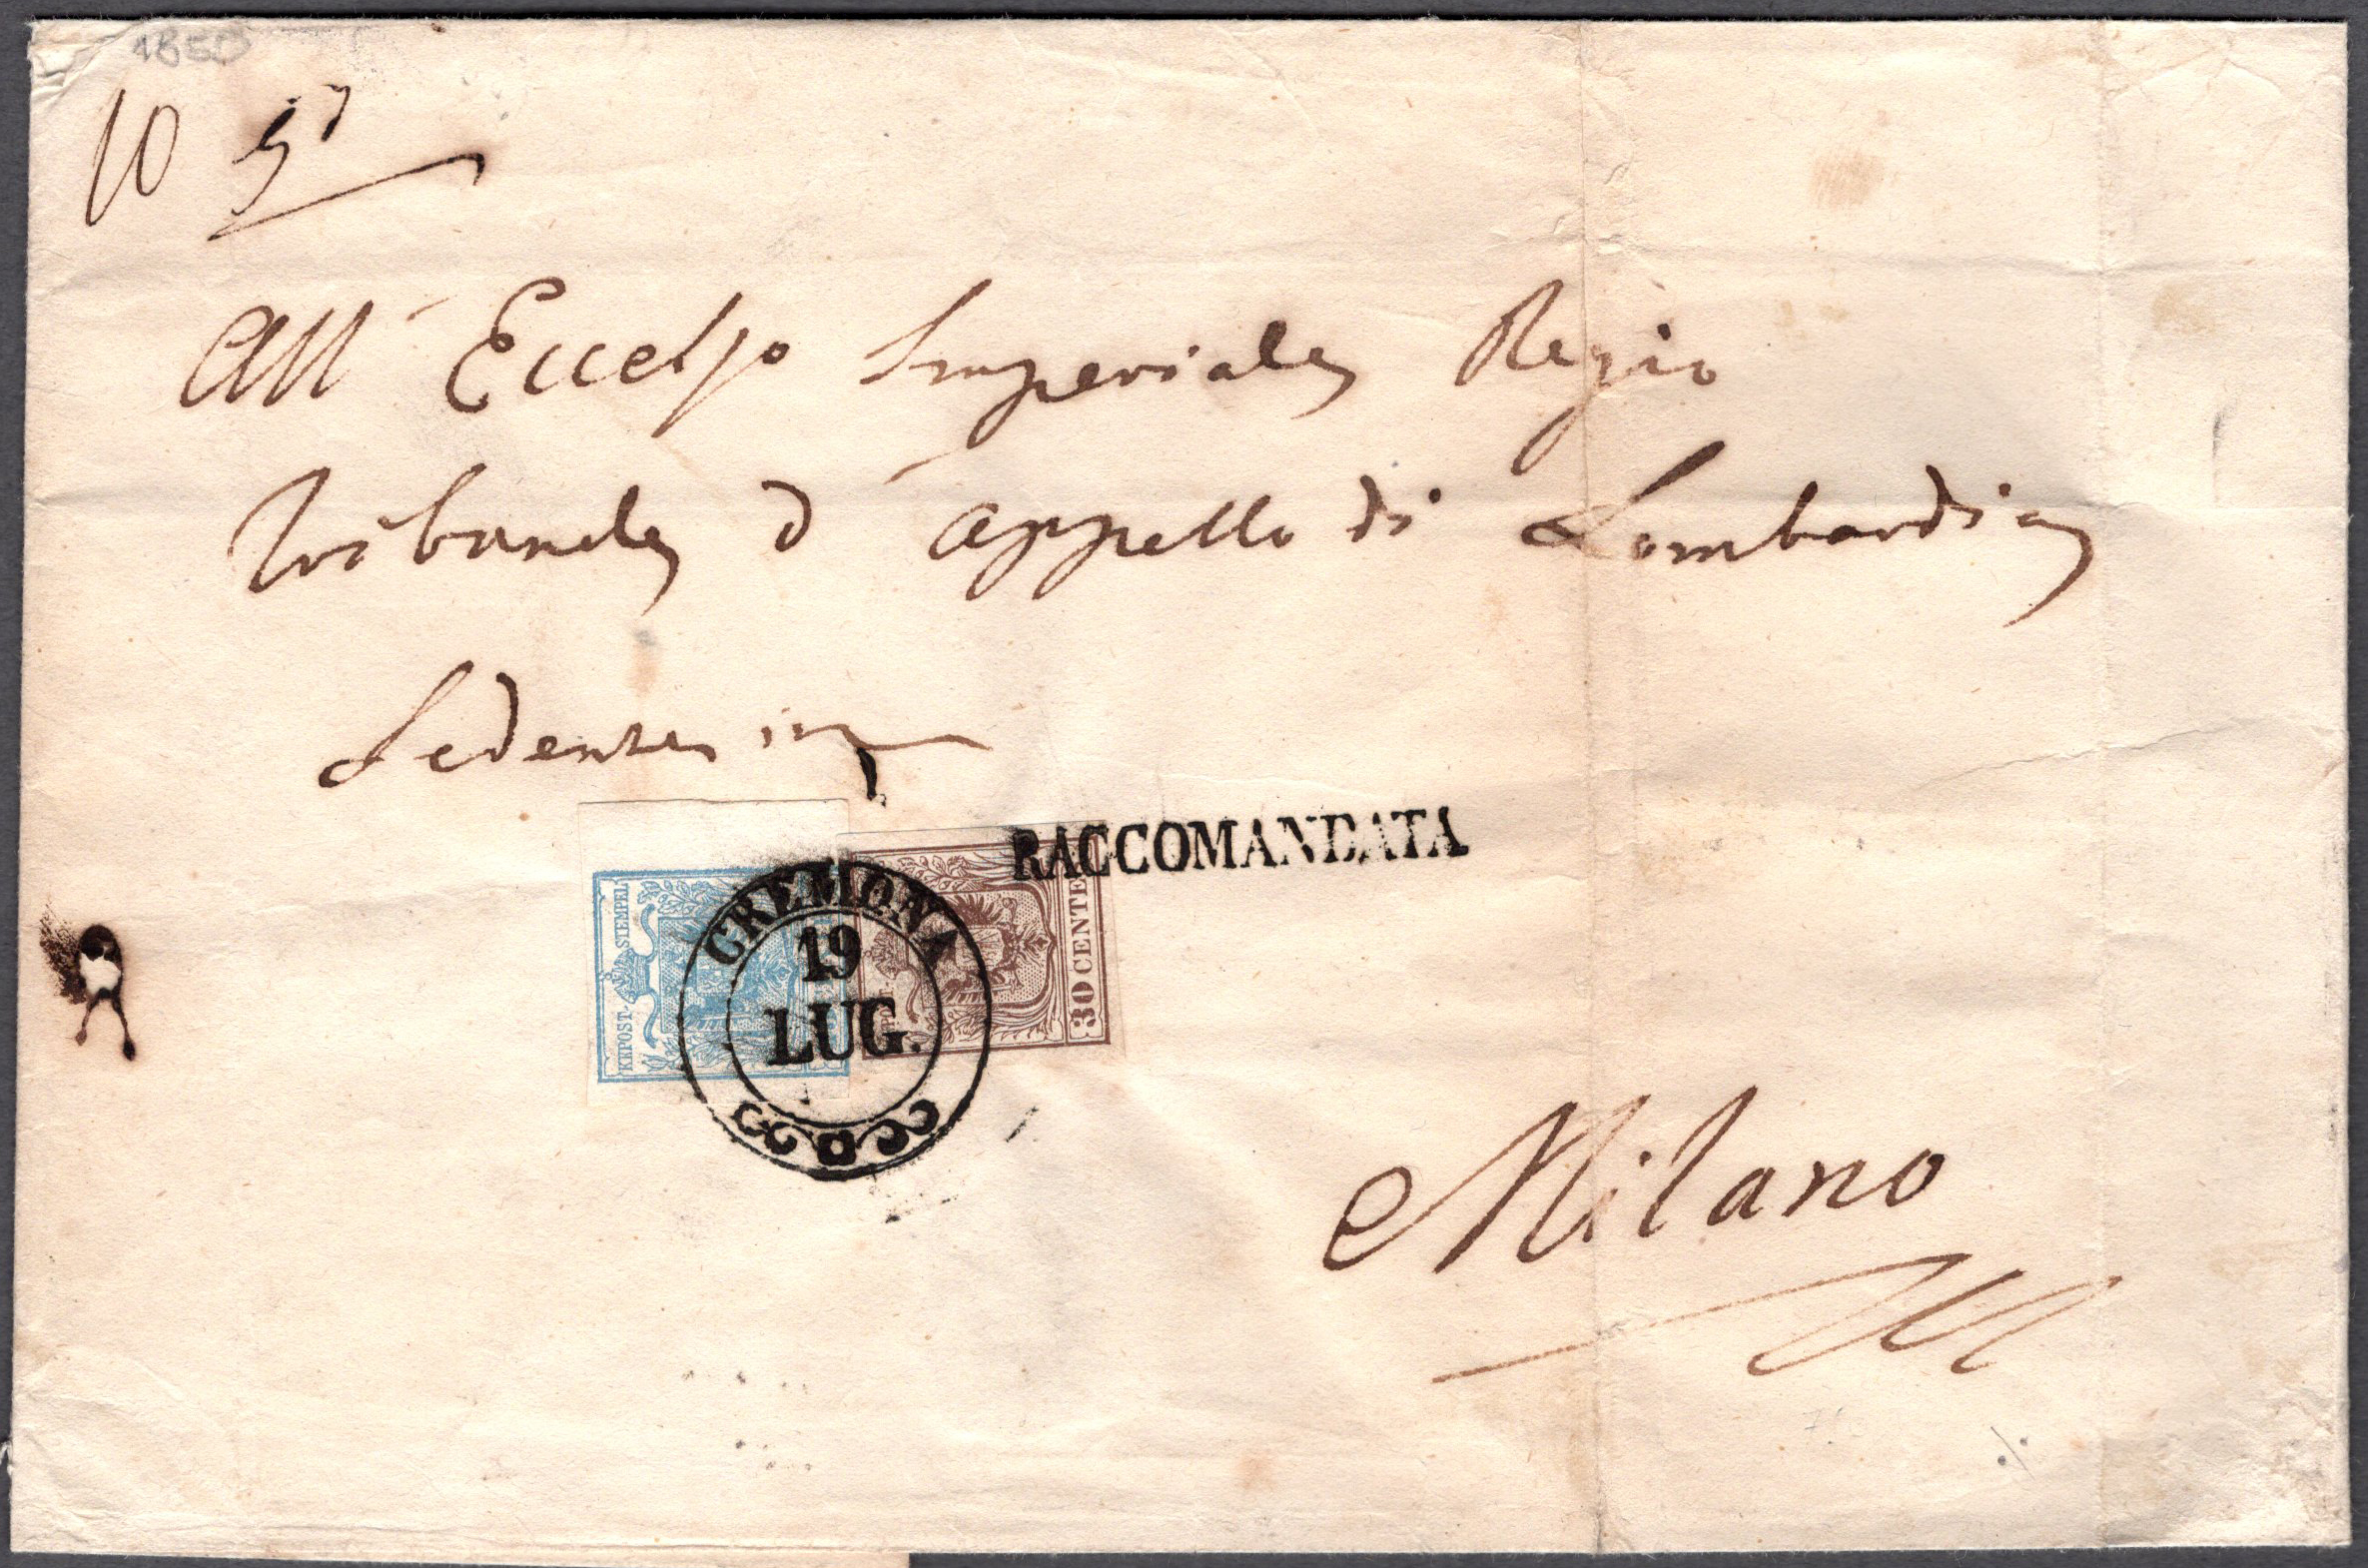 1850
10
All' Eccelso Imperiale Regio
Tribunale d' Appello di Lombardia
Sedente in
RACCOMANDATA
KKPOST-STEMPEL
30 CENTE
CREMONA
19
LUG.
Milano